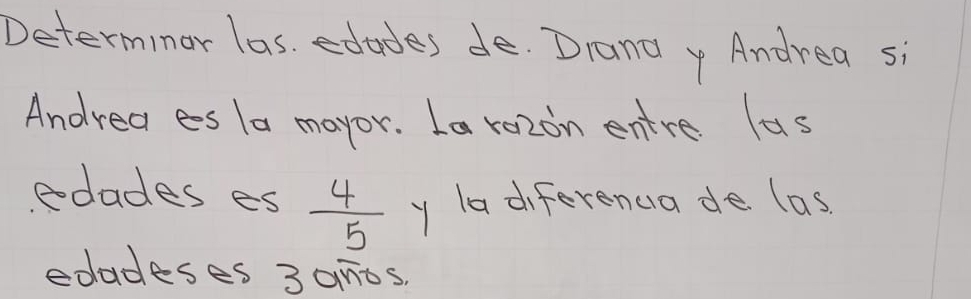 Determinar las. edades de. Diana y Andrea si
Andrea es la mayor. La razón entre. las
edades es 4/5 y la diferencia de las.
edades es 3 años.